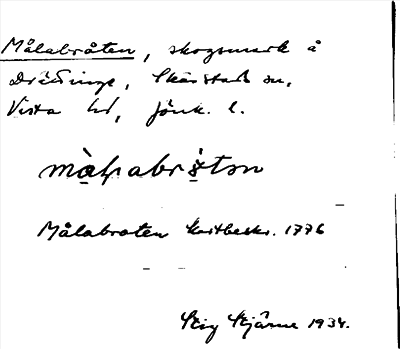 Målabråten, skogsmark å
Drättinge, Skärstads sn,
Vista hd, Jönk. l.
màḷabrǻ̀tən
Målabraten kartbeskr. 1776
Stig Stjärne 1934.